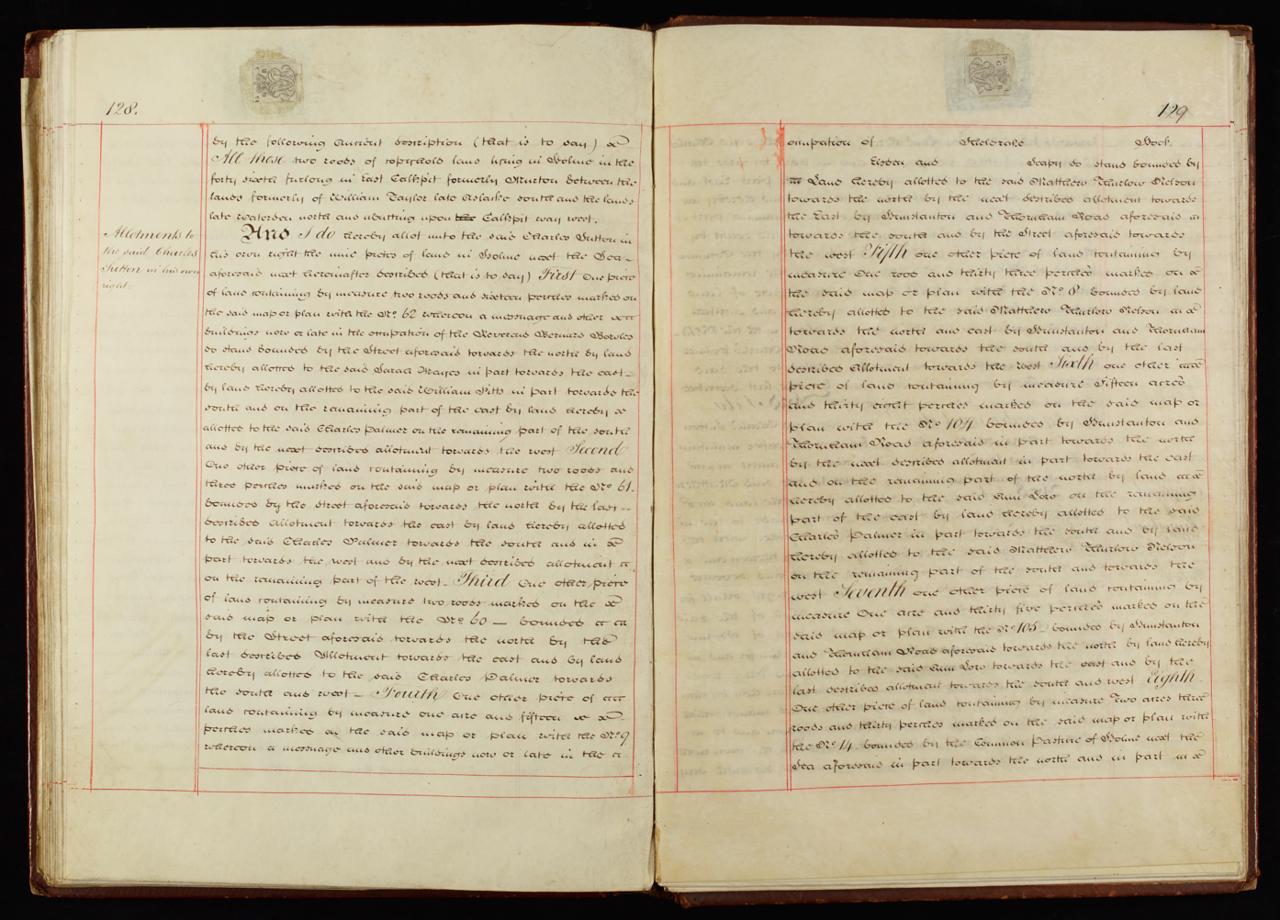 128.
by the following ancient description (that is to say)
All those two roods of copyhold land lying in Holme in the
forty sixth furlong in East Calkpit formerly Murton between the
lands formerly of William Taylor late Aslake south and the lands
late Waterden north and abutting upon the Calkpit way west.
Allotments to
the said Charles
Sutton in his own
right.
And I do hereby allot unto the said Charles Sutton in
his own right the nine pieces of land in Holme next the Sea
aforesaid next hereinafter described (that is to say) First One piece
of land containing by measure two roods and sixteen perches marked on
the said map or plan with the No. 62 whereon a messuage and other
buildings now or late in the occupation of the Reverend Bernard Bowles
do stand bounded by the Street aforesaid towards the north by land
hereby allotted to the said Sarah Mayes in part towards the east
by land hereby allotted to the said William Pitts in part towards the
south and on the remaining part of the east by land hereby
allotted to the said Charles Palmer on the remaining part of the south
and by the next described allotment towards the west Second
One other piece of land containing by measure two roods and
three perches marked on the said map or plan with the No. 61.
bounded by the Street aforesaid towards the north by the last
described allotment towards the east by land hereby allotted
to the said Charles Palmer towards the south and in
part towards the west and by the next described allotment
on the remaining part of the west - Third One other piece
of land containing by measure two roods marked on the
said map or plan with the No. 60 — bounded
by the Street aforesaid towards the north by the
last described Allotment towards the east and by land
hereby allotted to the said Charles Palmer towards
the south and west - Fourth One other piece of
land containing by measure one acre and fifteen
perches marked on the said map or plan with the No. 9
whereon a messuage and other buildings now or late in the
129
occupation of
and stand bounded by
Land hereby allotted to the said Matthew Thurlow Nelson
towards the north by the next described allotment towards
the East by Hunstanton and Thornham Road aforesaid
towards the south and by the Street aforesaid towards
the west Fifth one other piece of land containing by
measure One rood and thirty three perches marked on
the said map or plan with the No. 8 bounded by land
hereby allotted to the said Matthew Thurlow Nelson
towards the north and east by Hunstanton and Thornham
Road aforesaid towards the south and by the last
described Allotment towards the west Sixth one other
piece of land containing by measure Fifteen acres
and thirty eight perches marked on the said map or
plan with the No. 104 bounded by Hunstanton and
Thornham Road aforesaid in part towards the north
by the next described allotment in part towards the east
and on the remaining part of the north by land
hereby allotted to the said Ann on the remaining
part of the east by land hereby allotted to the said
Charles Palmer in part towards the south and by land
hereby allotted to the said Matthew Thurlow Nelson
on the remaining part of the south and towards the
west Seventh one other piece of land containing by
measure One acre and thirty five perches marked on the
said map or plan with the No. 105 - bounded by Hunstanton
and Thornham Road aforesaid towards the north by land hereby
allotted to the said Ann towards the east and by the
last described allotment towards the south and west Eighth
One other piece of land containing by measure Two acres three
roods and thirty perches marked on the said map or plan with
the No. 14 bounded by the Common Pasture of Holme next the
Sea aforesaid in part towards the north and in part